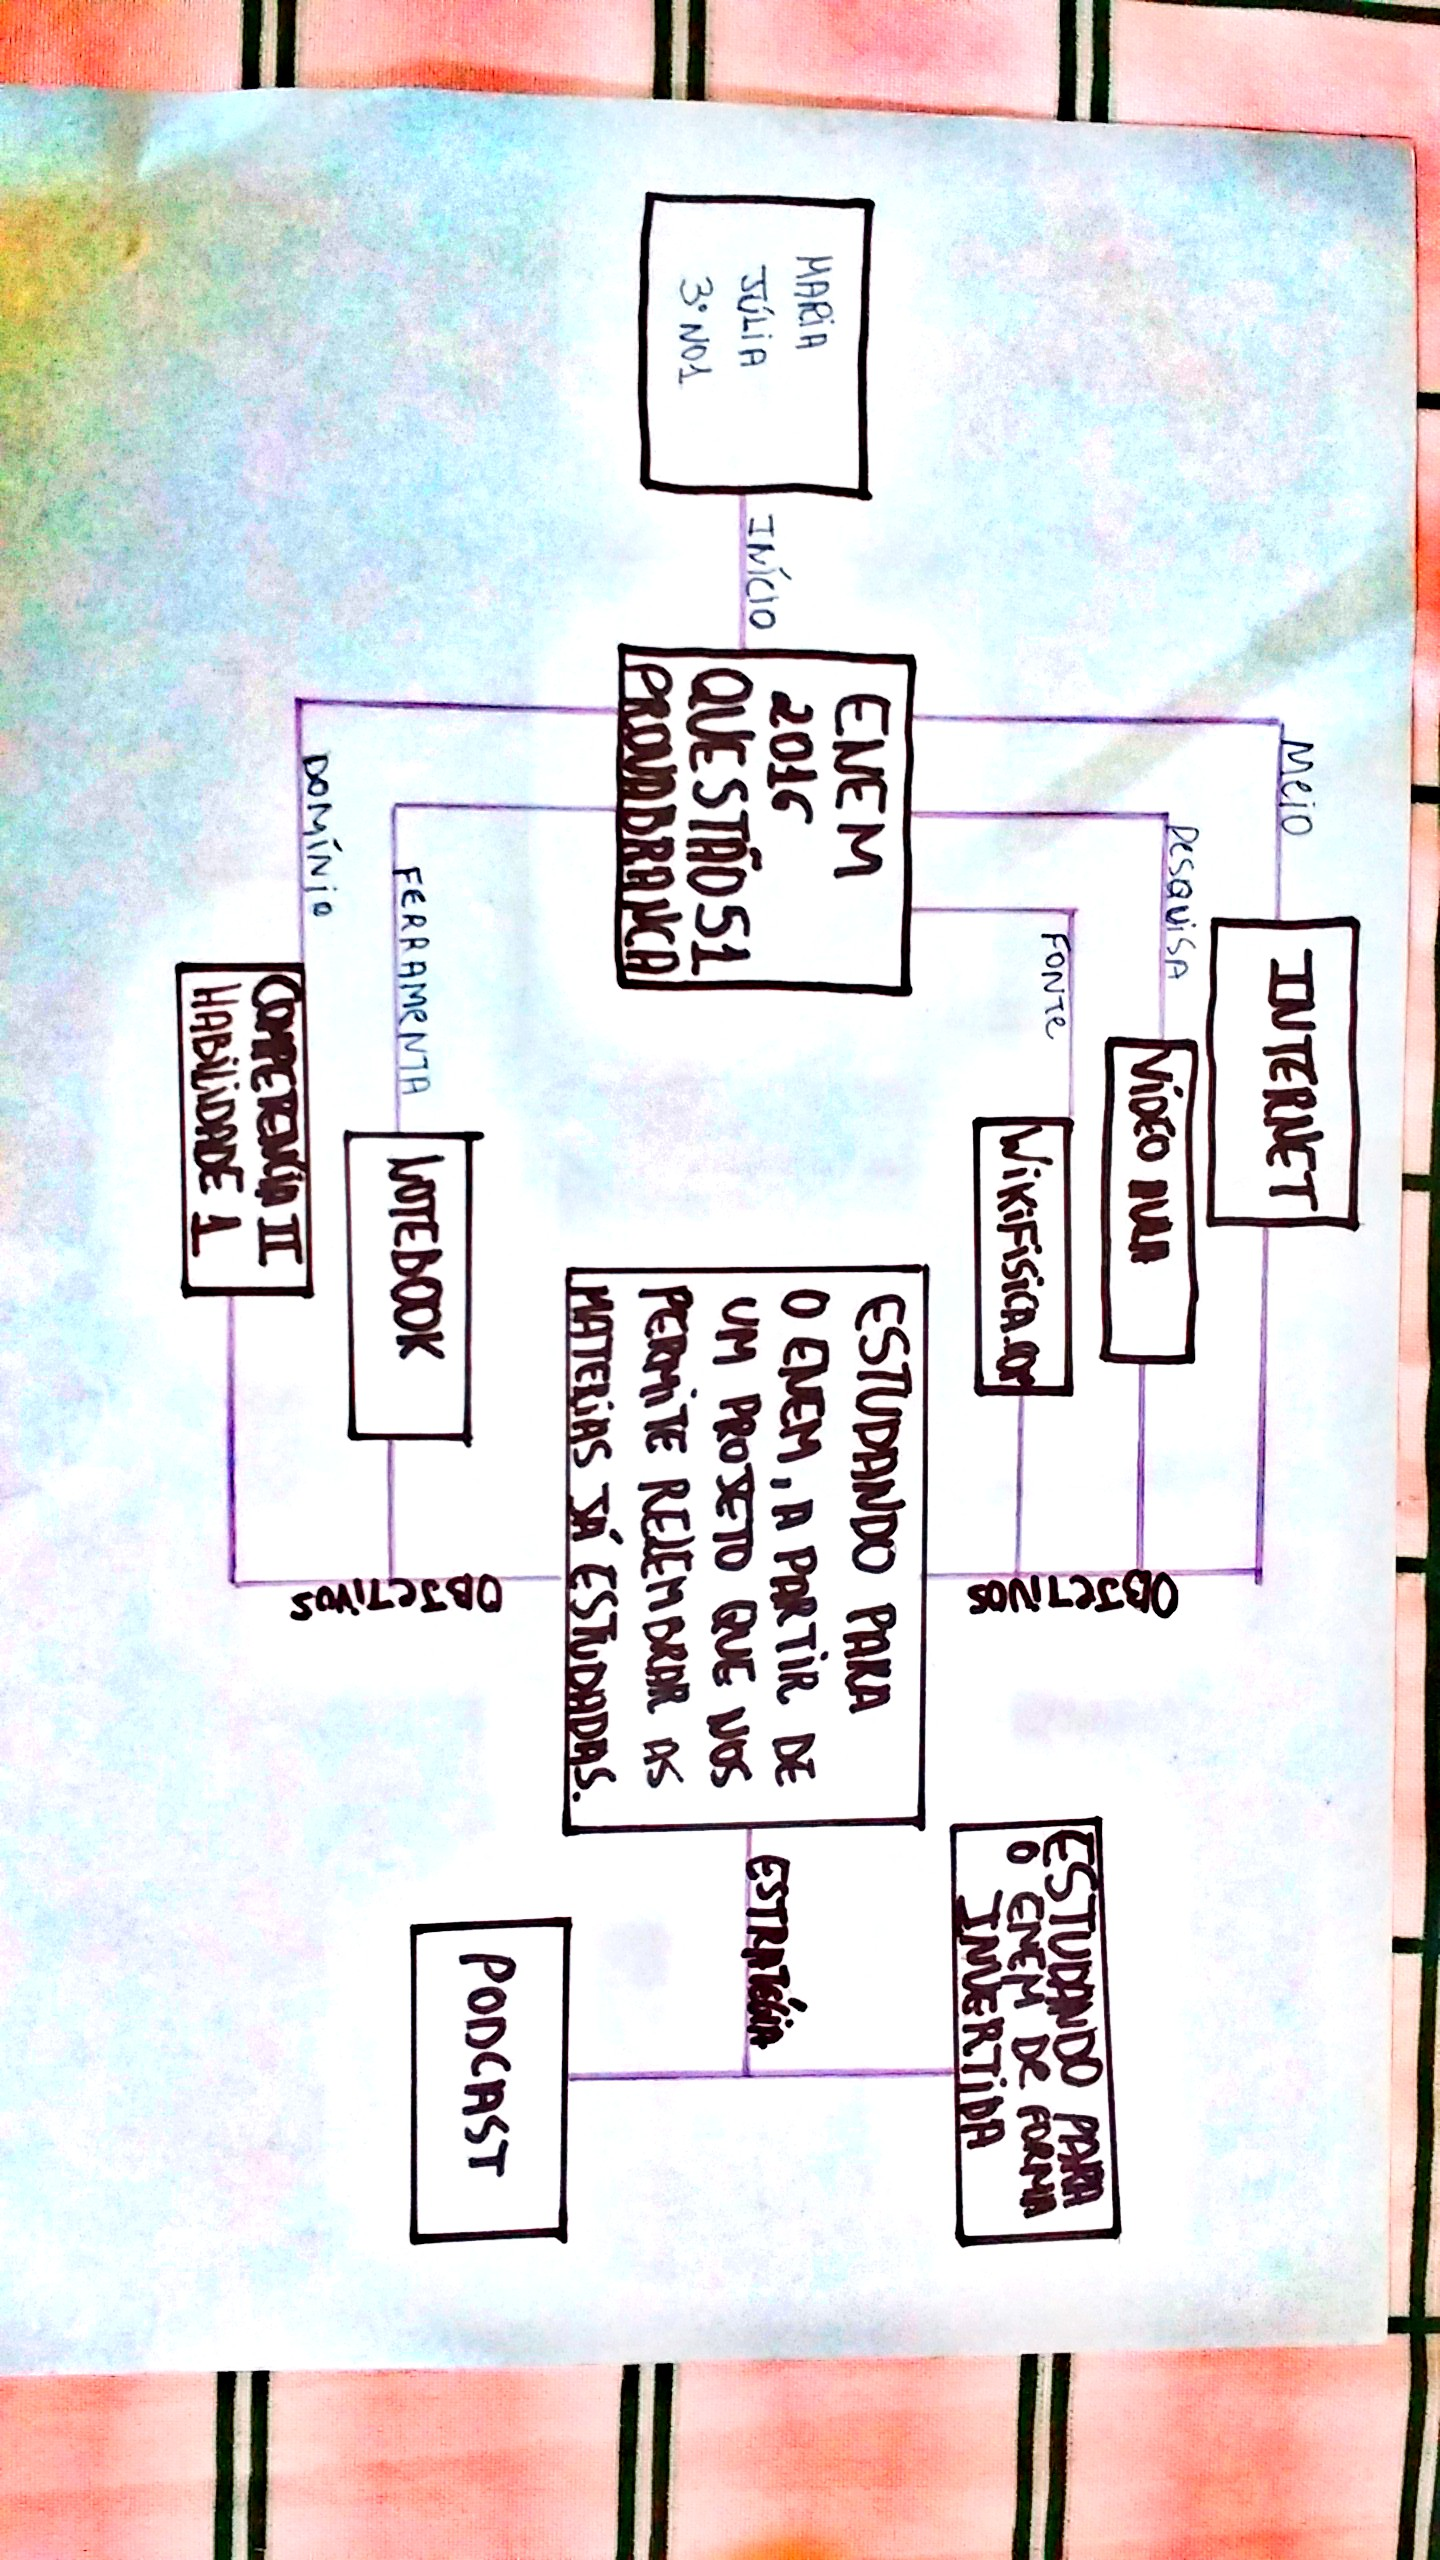 MARIA
JÚLIA
3º N01
INÍCIO
ENEM
2016
QUESTÃO 51
PROVA BRANCA
MEIO
INTERNET
PESQUISA
VÍDEO AULA
FONTE
WIKIFISICA.COM
FERRAMENTA
NOTEBOOK
DOMÍNIO
COMPETENCIA II
HABILIDADE 1
OBJETIVOS
OBJETIVOS
ESTUDANDO PARA
O ENEM, A PARTIR DE
UM PROJETO QUE NOS
PERMITE RELEMBRAR AS
MATERIAS JÁ ESTUDADAS.
ESTRATÉGIA
ESTUDANDO PARA
O ENEM DE FORMA
INVERTIDA
PODCAST